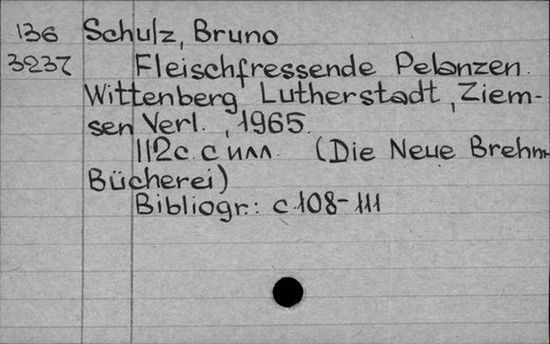 136 Schulz, Bruno
3237 Fleischfressende Pelanzen.
Wittenberg Lutherstadt, Ziem-
sen Verl., 1965.
112с. с илл. (Die Neue Brehm-
Bücherei)
Bibliogr.: с.108-111